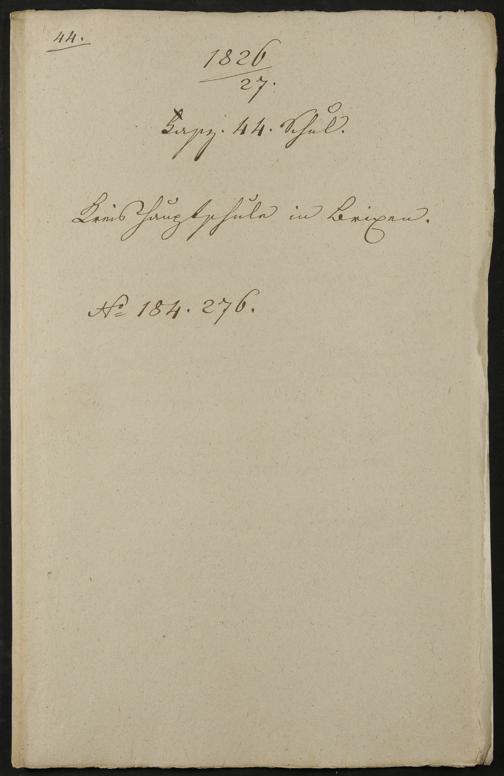 44.
1826
27.
Fasz. 44. Schul.
Kreishauptschule in Brixen.
No 184. 276.